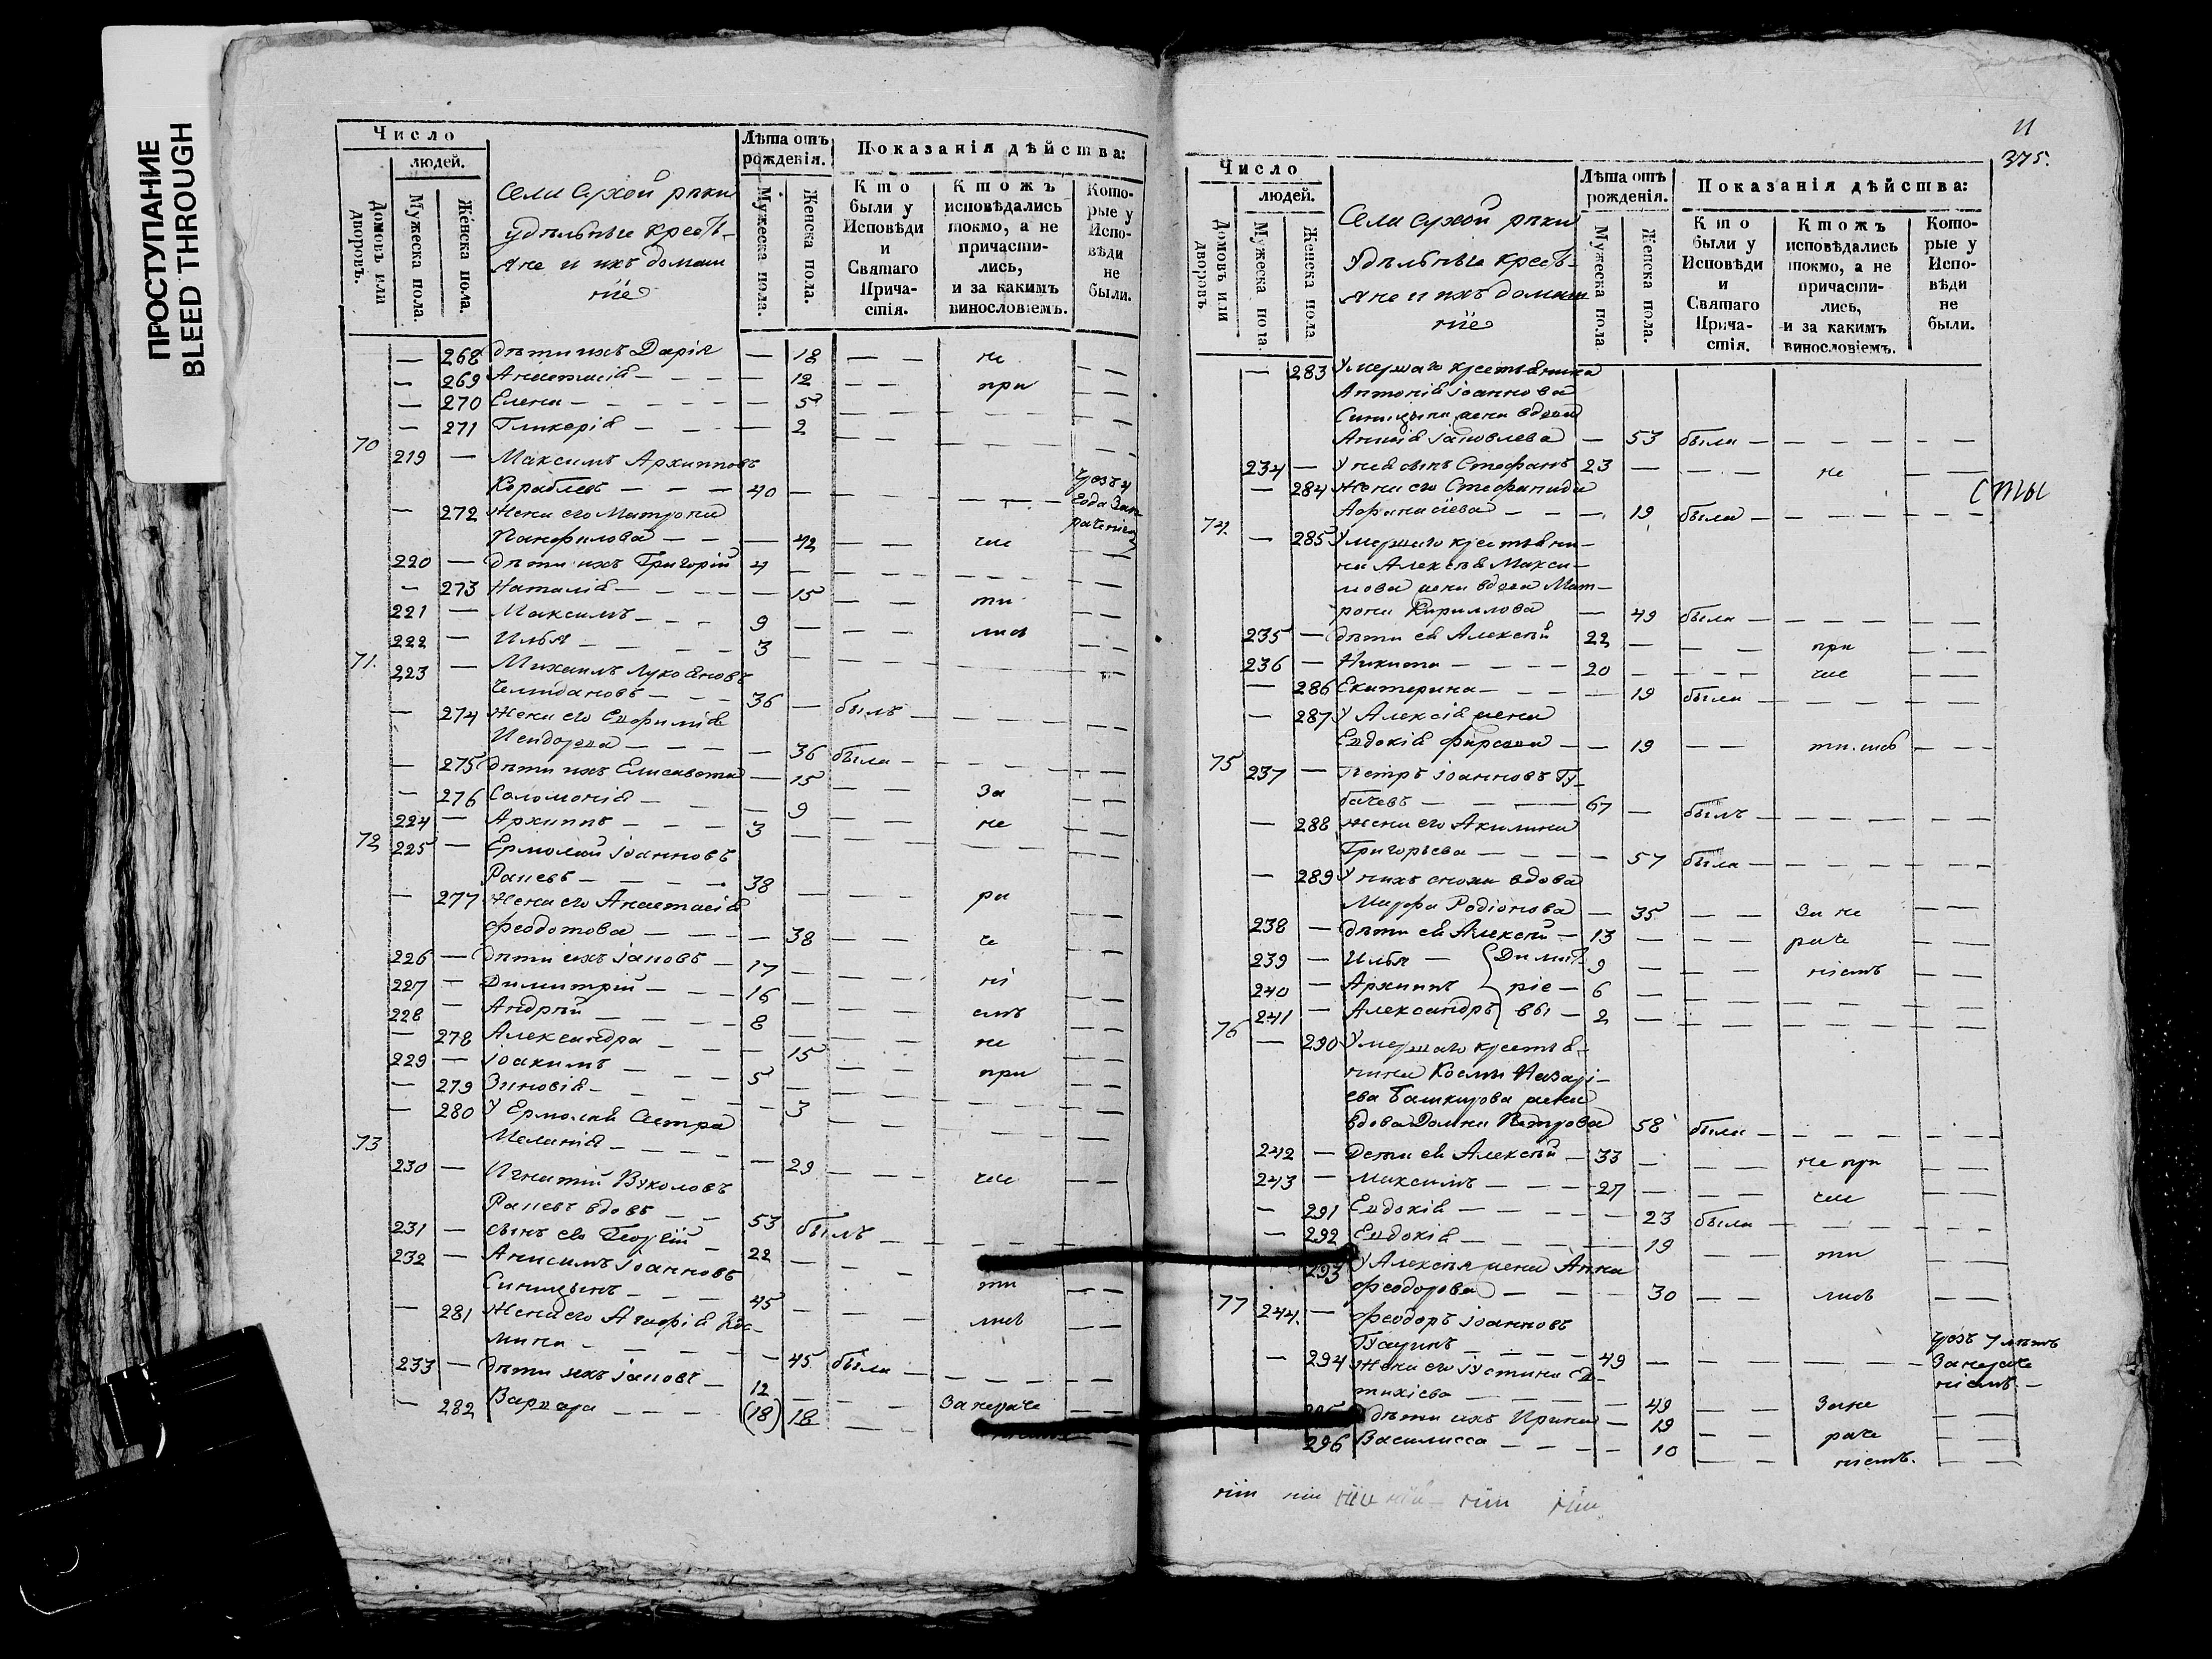 ПРОСТУПАНИЕ
BLEED THROUGH
Число
людей.
Домовъ или дворовъ.
Мужеска пола.
Женска пола.
Села Сухой рѣки
удѣльные кресть-
яне и ихъ домаш
ніе
Лѣта отъ рожденія.
Мужеска пола.
Женска пола.
Показанія дѣйства:
Кто были у Исповѣди и Святаго Прича-стія.
Ктожъ исповѣдались токмо, а не причасти-лись, и за какимъ винословіемъ.
Кото-рые у Испо-вѣди не были.
— 268 дѣти ихъ Дарія — 18 — — не — —
— 269 Анастасія — — — — 12 — — при — —
— 270 Елена — — — — — 5 — — — — —
— 271 Гликерія — — — — 2 — — — — —
70 219 — Максимъ Архиповъ
Кораблевъ — — — 40 — — — — чрезъ 4
года за не
раченіем
— 272 жена его Матрона
Панфилова — — — 42 — — чис — —
220 — дѣти ихъ Григорій 4 — — — — — —
— 273 Наталія — — — — 15 — — ти — —
221 — Максимъ — — — 9 — — — лись — —
222 — Илья — — — — 3 — — — — — —
71. 223 — Михаилъ Лукояновъ
Чемодановъ — — — 36 — былъ — — — — —
— 274 жена его Евфимія
Исидорова — — — — 36 была — — — — —
— 275 дѣти ихъ Елисавета — 15 — — за — —
— 276 Соломонія — — — — 9 — — не — —
224 — Архиппъ — — — 3 — — — — — —
72 225 — Ермолай Іоанновъ
Раневъ — — — — 38 — — — ра — —
— 277 жена его Анастасія
Феодотова — — — — 38 — — че — —
226 — дѣти ихъ Іаковъ — 17 — — — ні — —
227 — Димитрій — — — 16 — — — емъ — —
228 — Андрей — — — — 8 — — — не — —
— 278 Александра — — — 15 — — — —
229 — Іоакимъ — — — 5 — — — при — —
— 279 Зиновія — — — — — 3 — — — — —
— 280 У Ермолая сестра
Меланія — — — — — 29 — — чис — —
73 230 — Игнатій Вуколовъ
Раневъ вдовъ — — 53 былъ — — — — —
231 — сынъ его Георгій — 22 — — — ти — —
232 — Анисимъ Іоанновъ
Синицынъ — — — 45 — — — лись — —
— 281 жена его Агафія Кос-
мина — — — — — 45 была — — — — —
233 — дѣти ихъ Іаковъ — 12 — — — за нераче — —
— 282 Варвара — — — (18) 18 — — — —
11
375.
Число
людей.
Домовъ или дворовъ
Мужеска пола.
Женска пола
Села Сухой рѣки
Удѣльные кресть-
яне и ихъ домаш
ніе
Лѣта отъ рожденія.
Мужеска пола
Женска пола.
Показанія дѣйства:
Кто были у Исповѣди и Святаго Прича-стія.
Ктожъ исповѣдались токмо, а не причасти-лись, и за какимъ винословіемъ.
Кото-рые у Испо-вѣди не были.
— 283 Умершаго крестьянина
Антонія Іоаннова
Синицына жена вдова
Анна Іаковлева — 53 была — — — — — —
234 — У нея сынъ Стефанъ 23 — — — не — —
— 284 жена его Стефанида
Афанасіева — — — 19 была — — — — — —
74. — 285 Умершаго крестьяни-
на Алексѣя Макси-
мова жена вдова Мат-
рона Кириллова — 49 была — — — — — —
235 — дѣти ея Алексѣй 22 — — — при — —
236 — Никита — — — — 20 — — — чис — —
— 286 Екатерина — — — — 19 была — — — — —
— 287 У Алексія жена
Евдокія Фирсова — — 19 — — ти.лись — — —
75 237 — Петръ Іоанновъ Гу-
бачевъ — — — — 67 — былъ — — — — —
— 288 жена его Акилина
Григорьева — — — — 57 была — — — — — —
— 289 У нихъ сноха вдова
Марфа Родіонова — 35 — — за не — —
238 — дѣти ея Алексѣй — 13 — — — раче — —
239 — Илья — { Димит- 9 — — — ніемъ — —
240 — Архиппъ ріе — 6 — — — — — —
241 — Александръ } вы — 2 — — — — — —
76 — 290 Умершаго крестья-
нина Косми Назарі-
ева Башкирова жена
вдова Домна Петрова 58 была — — — — — —
242 — Дети ея Алексѣй — 33 — — — не при — —
243 — Максимъ — — — 27 — — — чис — —
— 291 Евдокія — — — — — 23 была — — — — —
— 292 Евдокія — — — — — 19 — — ти — —
293 У Алексѣя жена Анна
Феодорова — — — 30 — — лись — —
77 244. — Феодоръ Іоанновъ
— — — — 49 — — — — — чрезъ 7 лѣтъ
за нераче
ніемъ. —
— 294 жена его Іустина Ев-
тихіева — — — — — 49 — — За не — —
дѣти ихъ Ирина — 19 — — раче — —
296 Василисса — — — — — 10 — — ніемъ. — —
сты
ніи ніи ніи ніи ніи ніи